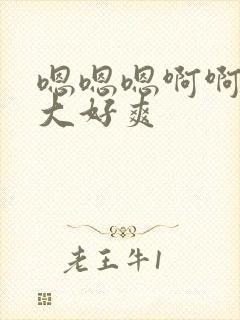 嗯嗯嗯啊啊
大好爽
老王牛1